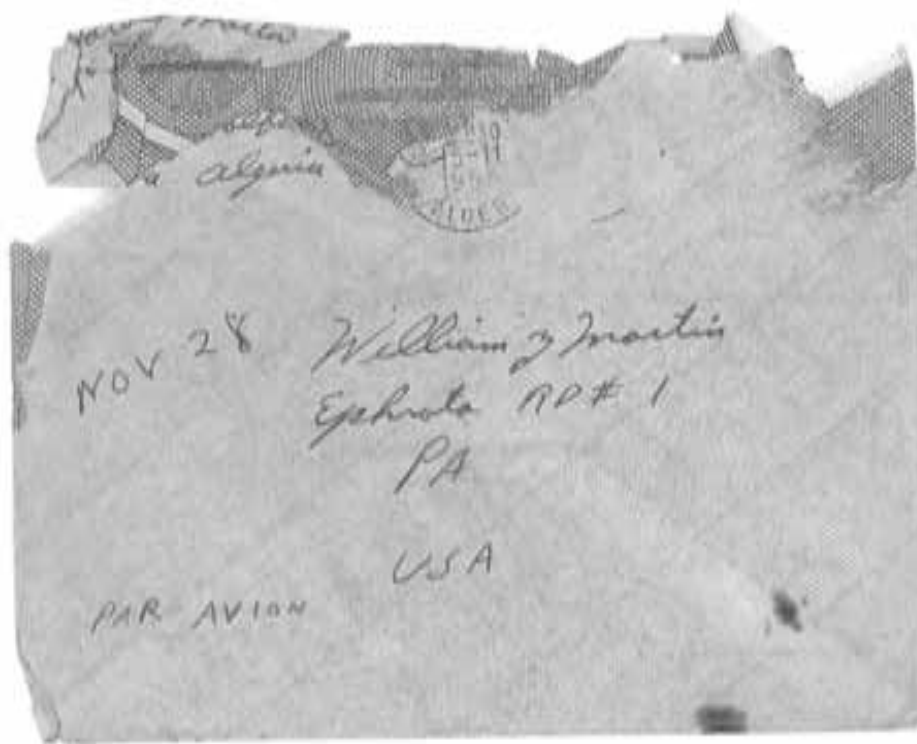 Algeria
NOV 28
William Z Martin
Ephrata RD# 1
PA
USA
PAR AVION